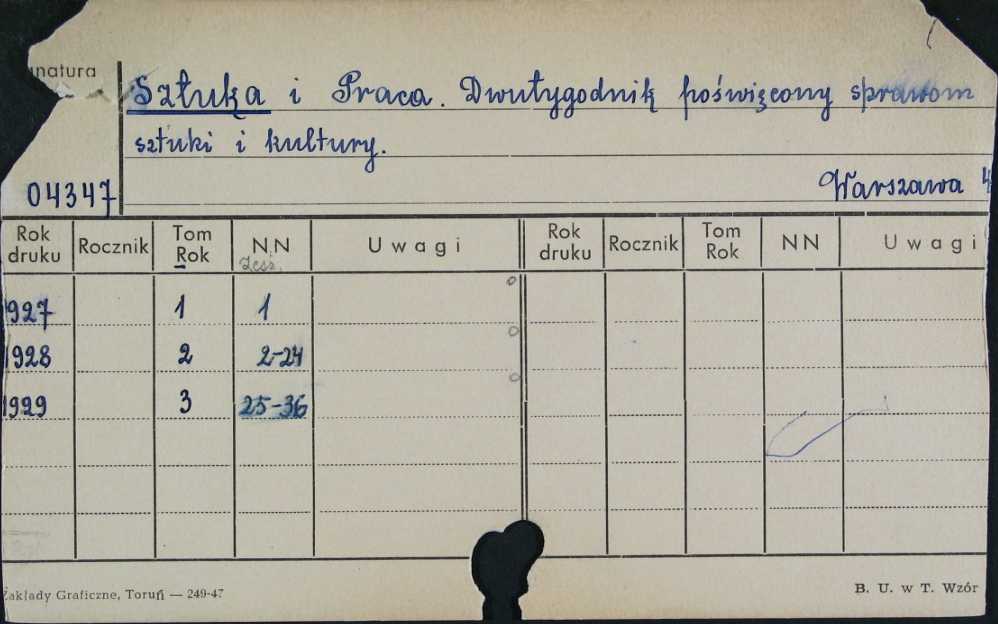 natura
Sztuka i Praca. Dwutygodnik poświęcony sprawom
sztuki i kultury.
04347 Warszawa 4
Rok druku Rocznik Tom Rok NN Uwagi Rok druku Rocznik Tom Rok NN Uwagi
Zesz.
1927 1 1
1928 2 2-24
1929 3 25-36
Zakłady Graficzne, Toruń — 249-47 B. U. w T. Wzór